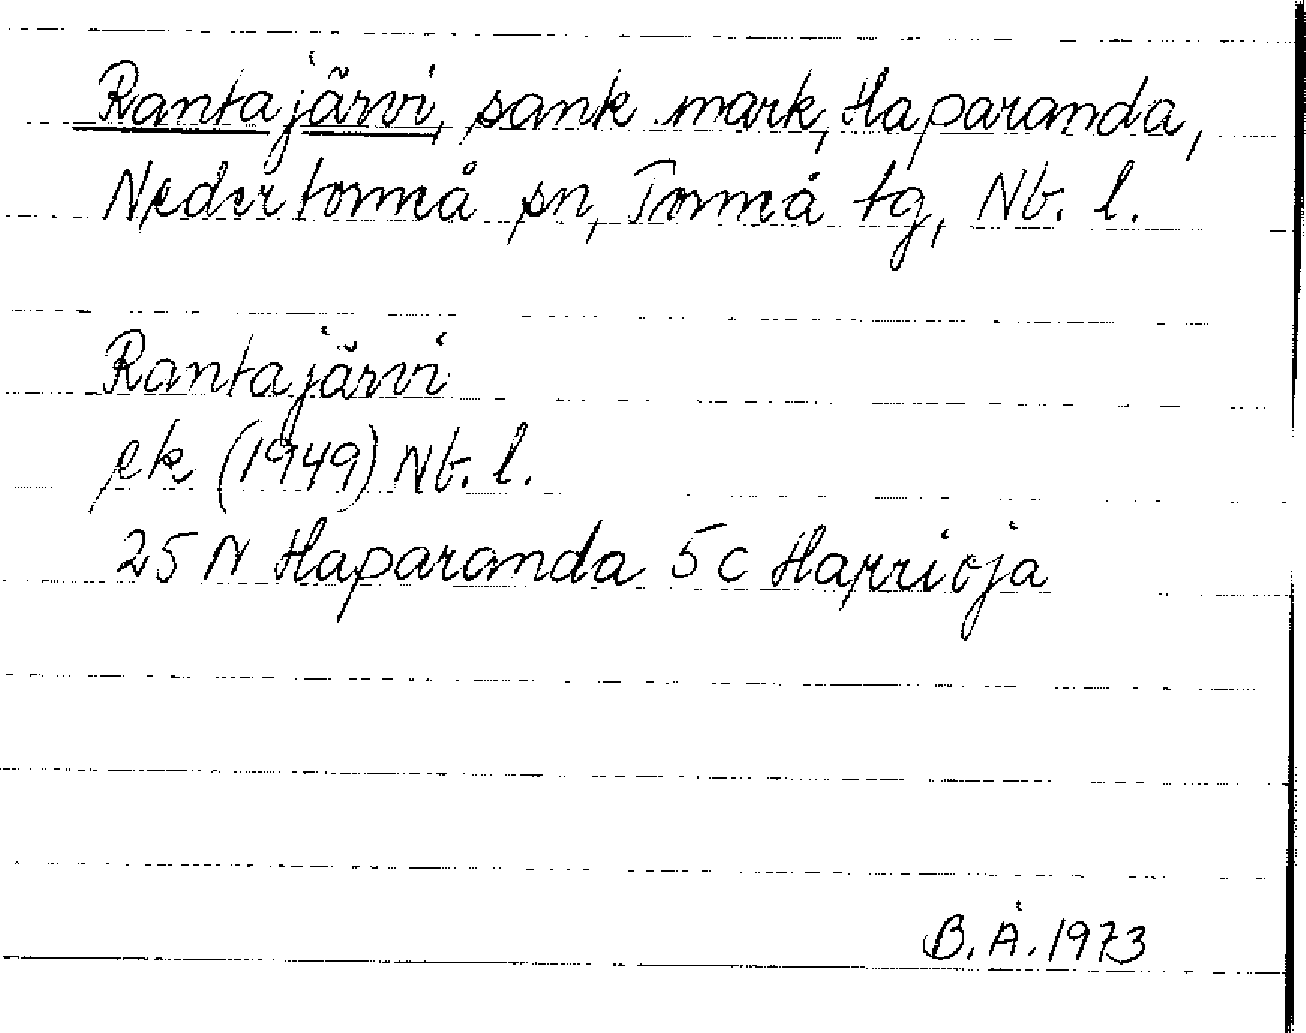 Rantajärvi, sank mark, Haparanda,
Nedertorneå sn, Torneå tg, Nb. l.
Rantajärvi
ek (1949) Nb. l.
25 N Haparanda 5 c Harrioja
B. Å. 1973